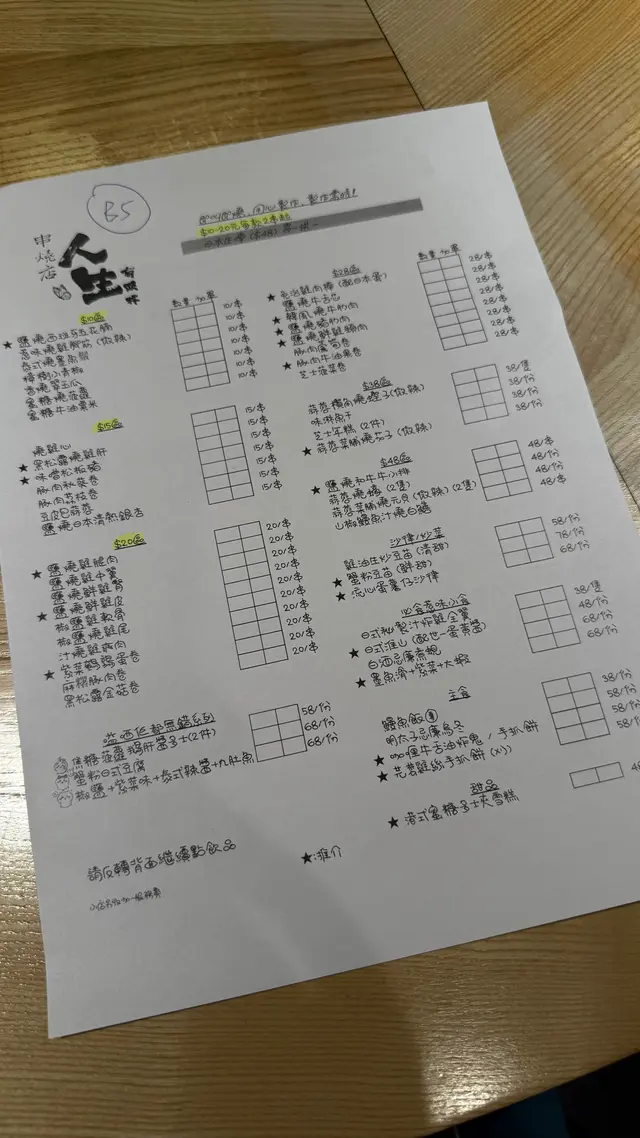 B5
串燒店
人生
有咽味
$10-20元每款2串起
數量 加單
$10區
★ 鹽燒西班牙五花腩 10/串
香味燒雞腳筋(微辣) 10/串
泰式燒墨魚鬚 10/串
燒翠玉瓜 10/串
蜜糖燒菠蘿 10/串
蜜糖牛油粟米 10/串
$15區
燒雞心 15/串
★ 黑松露燒雞肝 15/串
★ 味噌松板豬 15/串
豚肉秋葵卷 15/串
豚肉荔枝卷 15/串
豆皮包蒜蓉 15/串
鹽燒日本清熱銀杏 15/串
$20區
★ 鹽燒雞腿肉 20/串
鹽燒雞中翼 20/串
鹽燒鮮雞腎 20/串
★ 鹽燒鮮雞皮 20/串
椒鹽雞軟骨 20/串
椒鹽燒雞尾 20/串
汁燒雞 20/串
★ 紫菜鵪鶉蛋卷 20/串
麻糬豚肉卷 20/串
黑松露金菇卷 20/串
嗌晒佢都無錯系列
焦糖菠蘿鵝肝醬多士(2件) 58/份
蟹粉日式豆腐 68/份
椒鹽+紫菜味+泰式辣醬+九肚魚 68/份
請反轉背面繼續點飲品
★:推介
數量 加單
$28區
★ 免治雞肉棒(配日本蛋) 28/串
鹽燒牛舌芯 28/串
★ 韓風燒牛肋肉 28/串
★ 鹽燒 28/串
★ 鹽燒鮮雞頸肉 28/串
豚肉露筍卷 28/串
★ 豚肉牛油果卷 28/串
芝士菠菜卷 28/串
$38區
蒜蓉欖角燒蟶子(微辣) 38/隻
味淋魚干 38/份
芝士年糕(2件) 38/份
★ 蒜蓉菜脯燒茄子(微辣) 38/份
$48區
★ 鹽燒和牛牛小排 48/串
蒜蓉燒蠔(2隻) 48/份
蒜蓉菜脯燒元貝(微辣)(2隻) 48/份
山椒鰻魚汁燒白鱔 48/串
沙律/炒菜
雞油庄炒豆苗(清甜) 58/份
★ 蟹粉豆苗(鮮甜) 78/份
★ 流心蛋薯仔沙律 68/份
必食惹味小食
日式秘製汁炸雞全翼 38/隻
★ 日式淮山(配世一蛋黃醬) 48/份
白酒忌廉煮蜆 68/份
★ 墨魚滑+紫菜+大蝦 68/份
主食
鰻魚飯 38/份
明太子忌廉烏冬 58/份
★ 咖喱牛舌油炸鬼/手抓餅 58/份
★ 芫荽雞絲手抓餅(X)) 58/份
甜品
★ 港式蜜糖多士夾雪糕